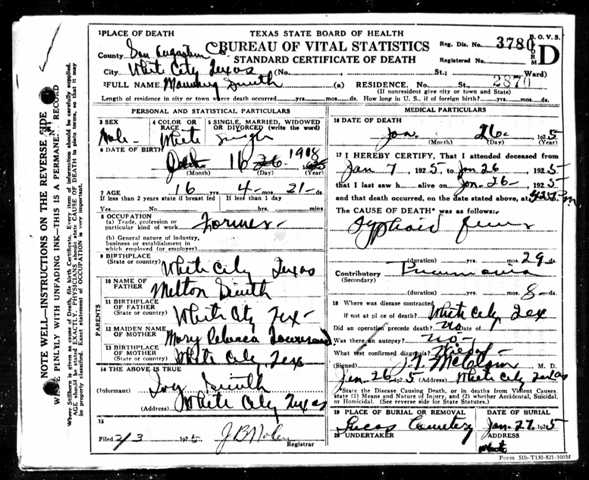 TEXAS STATE BOARD OF HEALTH
BUREAU OF VITAL STATISTICS
STANDARD CERTIFICATE OF DEATH
B. O. V. S.
FORM D
Reg. Dis. No. 3780
Registered No.
2870
1 PLACE OF DEATH
County San Augustine
City White City Texas (No. St.; Ward)
2 FULL NAME Manning Smith (a) RESIDENCE. No. St.
(If nonresident give city or town and State)
Length of residence in city or town where death occurred yrs. mos. ds. How long in U. S., if of foreign birth? yrs. mos. ds.
PERSONAL AND STATISTICAL PARTICULARS
3 SEX
Male
4 COLOR OR RACE
White
5 SINGLE, MARRIED, WIDOWED OR DIVORCED (write the word)
Single
6 DATE OF BIRTH
16 1908
(Month) (Day) (Year)
7 AGE
16 yrs. 4 mos. 21 ds.
If less than 2 years state if breast fed
If less than 1 day
8 OCCUPATION
(a) Trade, profession or particular kind of work Farmer
(b) General nature of industry, business or establishment in which employed (or employer)
9 BIRTHPLACE
(State or country) White City Texas
PARENTS
10 NAME OF FATHER Melton Smith
11 BIRTHPLACE OF FATHER
(State or country) White City Tex
12 MAIDEN NAME OF MOTHER Mary Rebecca
13 BIRTHPLACE OF MOTHER
(State or country) White City Tex
14 THE ABOVE IS TRUE
(Informant) Smith
(Address) White City Texas
15
Filed 2/3 Registrar
MEDICAL PARTICULARS
16 DATE OF DEATH
Jan. 26 1925
(Month) (Day) (Year)
17 I HEREBY CERTIFY, That I attended deceased from
Jan 7, 1925 to Jan 26, 1925
that I last saw h alive on Jan-26-, 1925
and that death occurred, on the date stated above, at
The CAUSE OF DEATH* was as follows:
Typhoid Fever
(duration) mos. 29 ds.
Contributory Pneumonia
(Secondary)
(duration) mos. 8 ds.
18 Where was disease contracted
if not at place of death? White City Tex
Did an operation precede death? no Date of
Was there an autopsy? no
What test confirmed diagnosis?
(Signed) M. D.
Jan 26 (Address) White City Texas
* State the Disease Causing Death, or in deaths from Violent Causes state (1) Means and Nature of Injury, and (2) whether Accidental, Suicidal, or Homicidal. (See reverse side for State Statutes.)
19 PLACE OF BURIAL OR REMOVAL
Lucas Cemetery
DATE OF BURIAL
Jan. 27, 1925
20 UNDERTAKER
ADDRESS
NOTE WELL—INSTRUCTIONS ON THE REVERSE SIDE
WRITE PLAINLY WITH UNFADING INK—THIS IS A PERMANENT RECORD